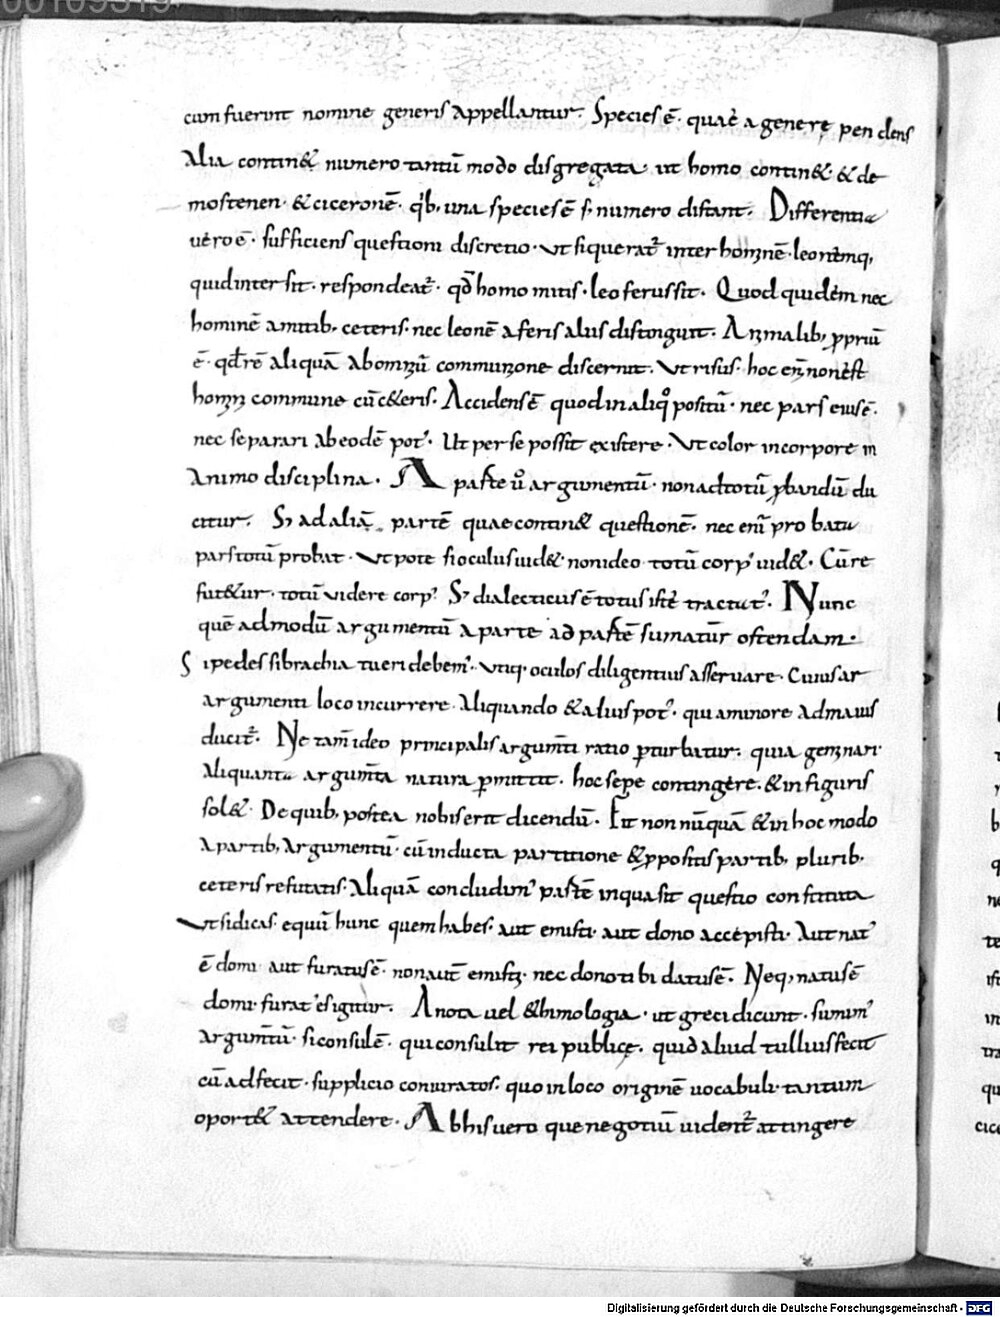 00109319
cum fuerint nomine generis appellantur. Species ē. quae a genere pendens
Alia contin& numero tantū modo disgregata. ut homo contin& & de
mostenen. & ciceronē. qb; una species ē s; numero distant. Differentia
uero ē. sufficiens questioni discretio. ut si querat᷑ inter hominē. leonēmq;
quid intersit. respondeat᷑. qđ homo mitis. leo ferus sit. Quod quidem nec
hominē a mitib; ceteris. nec leonē a feris aliis distinguit. Animalib; ꝓpriū
ē. qđ rē aliquā ab omniū communione discernit. Ut risus. hoc enī non est
homini commune cū c&eris. Accidens ē quod in aliqͦ positū. nec pars eius ē.
nec separari ab eodē pot᷑. Ut per se possit existere. Ut color in corpore in
Animo disciplina. A parte ůo argumentū. non ad totū ꝓbandū du
citur. S; ad aliā partē quae contin& questionē. nec enī probatu
pars totū probat. Ut pote si oculus uid&. non ideo totū corp᷒ uid&. Cū re
fut&ur. totū videre corp᷒. S; dialecticus ē totus iste tractat᷒. Nunc
quē admodū argumentū a parte ad partē sumatur ostendam.
Si pedes si brachia tueri debem᷒. utiq; oculos diligentius asseruare. Cuius ar
argumenti loco incurrere. Aliquando & aliuspot᷑. qui a minore ad maius
ducit᷑. Ne tam̄ ideo principalis argumti ratio ꝑturbatur. quia geminari
Aliquanta argumta natura ꝑmittit. hoc sepe contingere. & in figuris
sol&. De quib; postea nobis erit dicendū. Fit non nūquā & in hoc modo
A partib; Argumentū. cū inducta partitione & ꝓpositis partib; plurib;
ceteris refutatis. Aliquā concludim᷒ partē in qua sit questio constituta
Ut si dicas. equū hunc quem habes. aut emisti. aut dono accepisti. Aut nat᷒
ē domi. aut furatus ē. non aut̄ emisti. nec dono tibi datus ē. Neq; natus ē
domi. furat᷒ es igitur. A nota uel &himologia. ut greci dicunt. sumim᷒
Argumtū. si consul ē. qui consulit rei publicę. quid aliud tullius fecit
cū adfecit. supplicio coniuratos. quo in loco originē uocabuli tantum
oport& attendere. Ab his uero que negotiū uident᷑ attingere
Digitalisierung gefördert durch die Deutsche Forschungsgemeinschaft - DFG